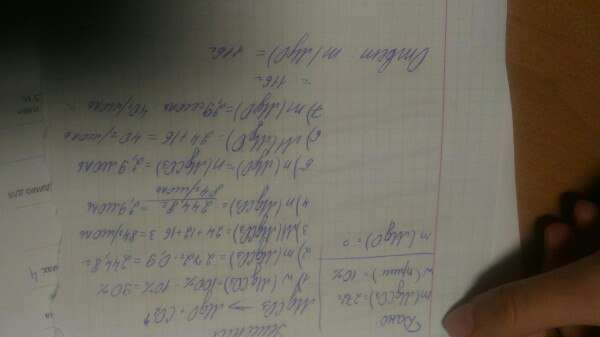 Дано
m(MgCO3)=272г
w(прим.)=10%
m(MgO)=?
Решение
MgCO3 → MgO + CO2↑
1) w(MgCO3)=100%-10%=90%
2) m(MgCO3)=272·0,9=244,8г
3) M(MgCO3)=24+12+16·3=84г/моль
4) n(MgCO3)=244,8г/84г/моль=2,9моль
5) n(MgO)=n(MgCO3)=2,9моль
6) M(MgO)=24+16=40г/моль
7) m(MgO)=2,9моль·40г/моль=
=116г
Ответ m(MgO)=116г